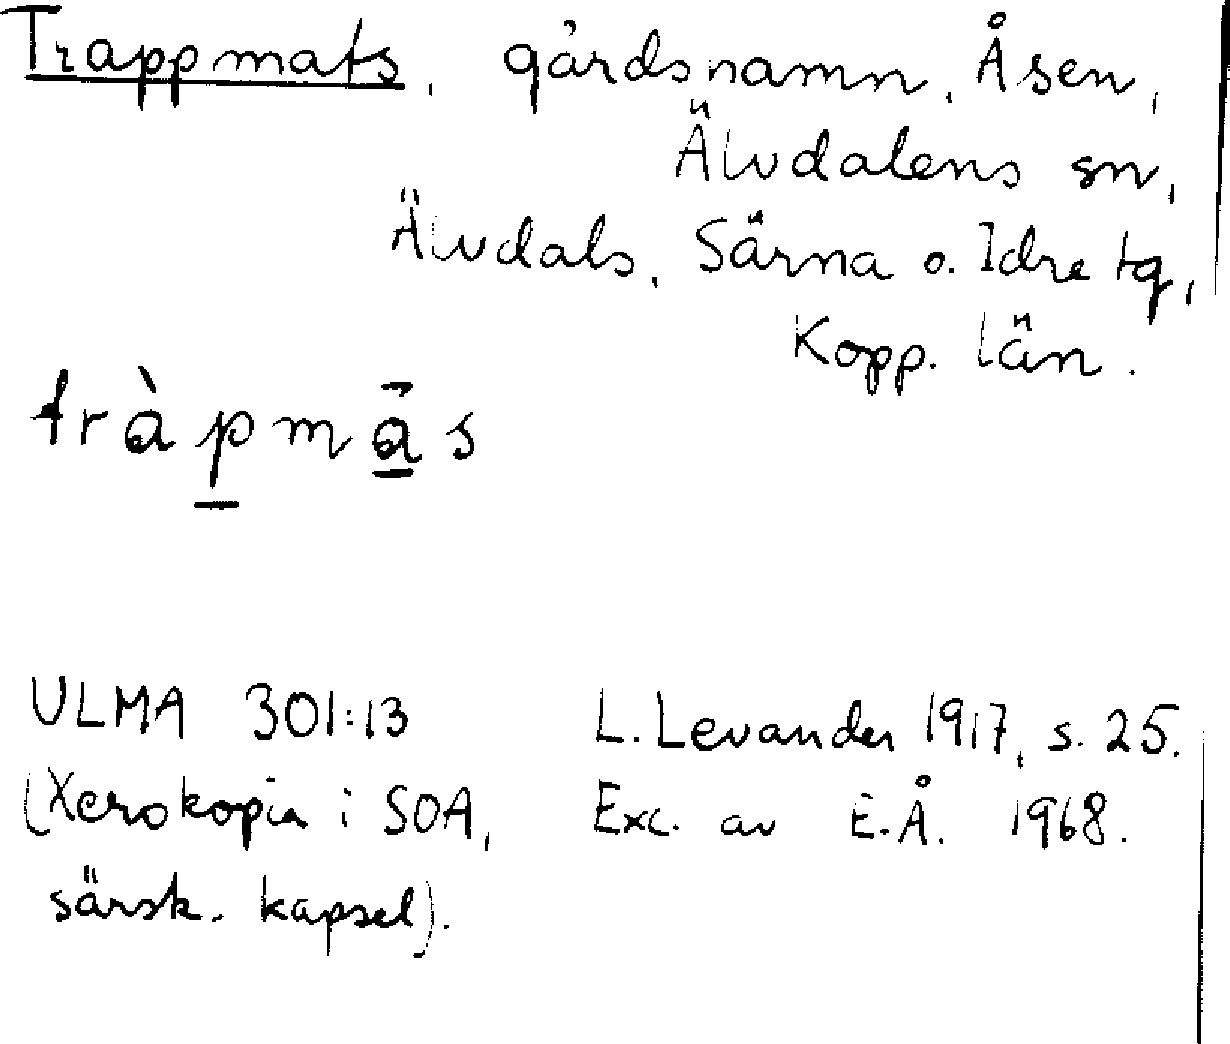 Trappmats, gårdsnamn, Åsen,
Älvdalens sn,
Älvdals, Särna o. Idre tg,
Kopp. län.
tràp̲mā̲s
ULMA 301:13 L. Levander 1917, s. 25.
(Xerokopia i SOA, Exc. av E.Å. 1968.
särsk. kapsel).